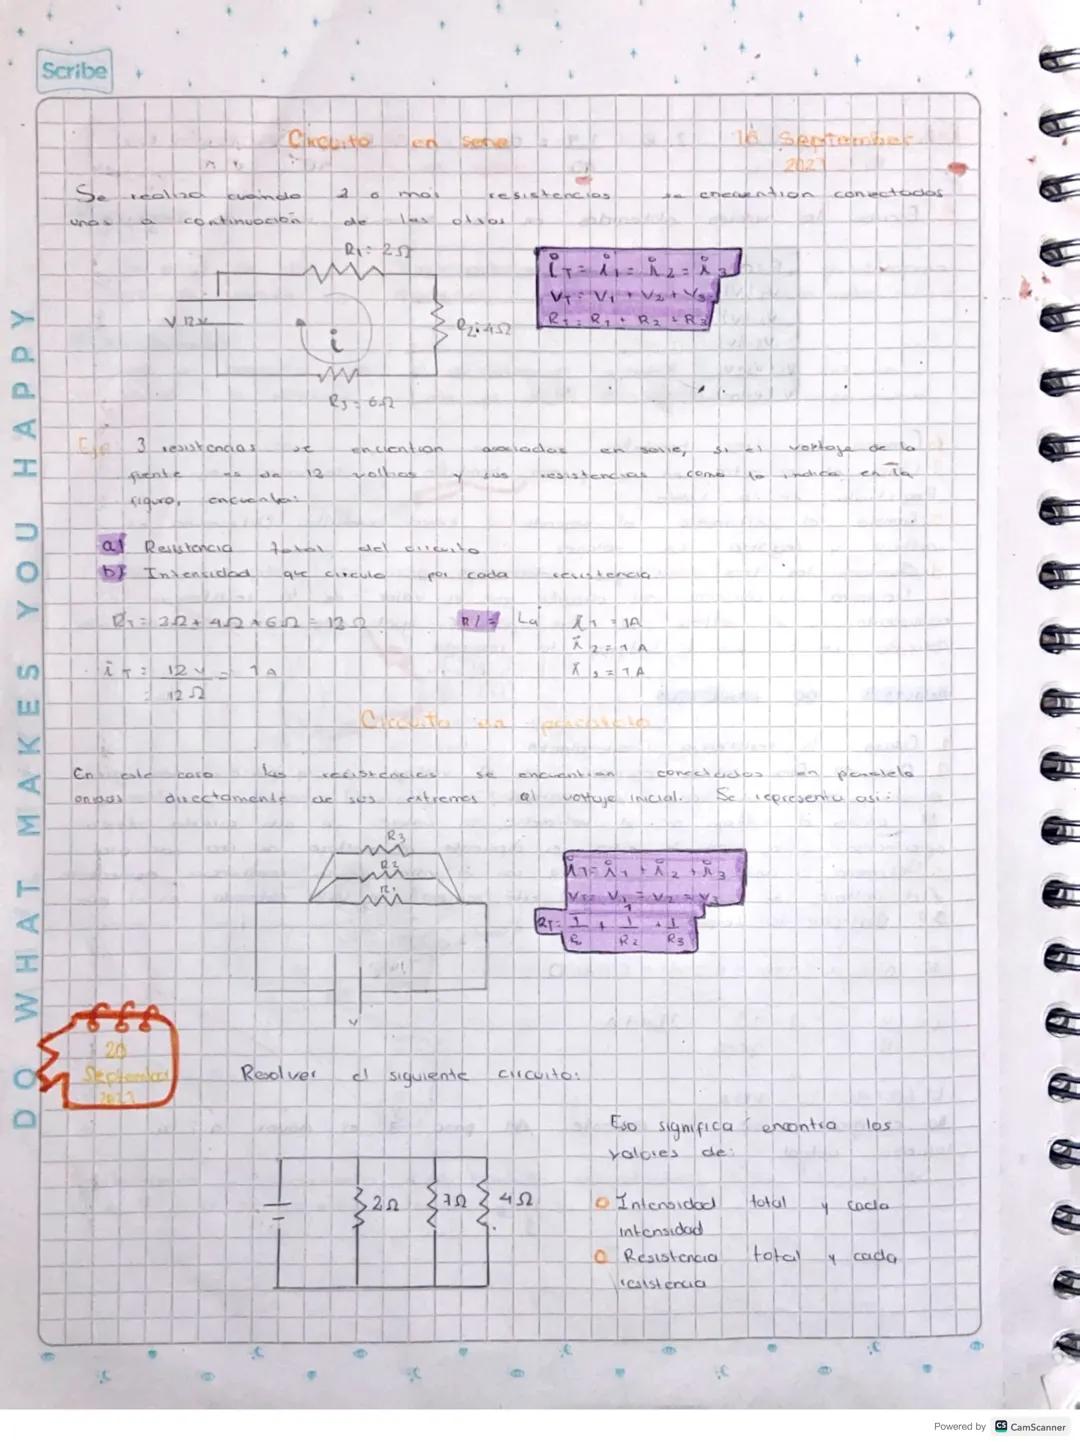 Scribe
Circuito en serie
16 September
2023
Se realiza cuando 2 o más resistencias se encuentran conectadas
unas a continuación de las otras
R₁ = 2Ω
V 12v
i
R₂ = 4Ω
R₃ = 6Ω
i T = i 1 = i 2 = i 3
VT = V1 + V2 + V3
RT = R1 + R2 + R3
Eje 3 resistencias se encuentran asociadas en serie, si el voltaje de la
fuente es de 12 voltios y sus resistencias como lo indica en la
figura, encuentra:
a) Resistencia total del circuito
b) Intensidad que circula por cada resistencia
RT = 2Ω + 4Ω + 6Ω = 12 Ω
R/= La i 1 = 1A
i 2 = 1 A
i 3 = 1 A
i T = 12 v = 1 A
= 12 Ω
Circuito en paralelo
En este caso las resistencias se encuentran conectadas en paralelo
directamente de sus extremos al voltaje inicial. Se representa asi:
R3
R2
R1
V
i T = i 1 + i 2 + i 3
VT = V1 = V2 = V3
RT = 1/R + 1/R2 + 1/R3
20
September
2023
Resolver el siguiente circuito:
Eso significa encontra los
valores de:
2Ω
4Ω
Intensidad total y cada
intensidad
Resistencia total y cada
resistencia
DO WHAT MAKES YOU HAPPY
Powered by CS CamScanner